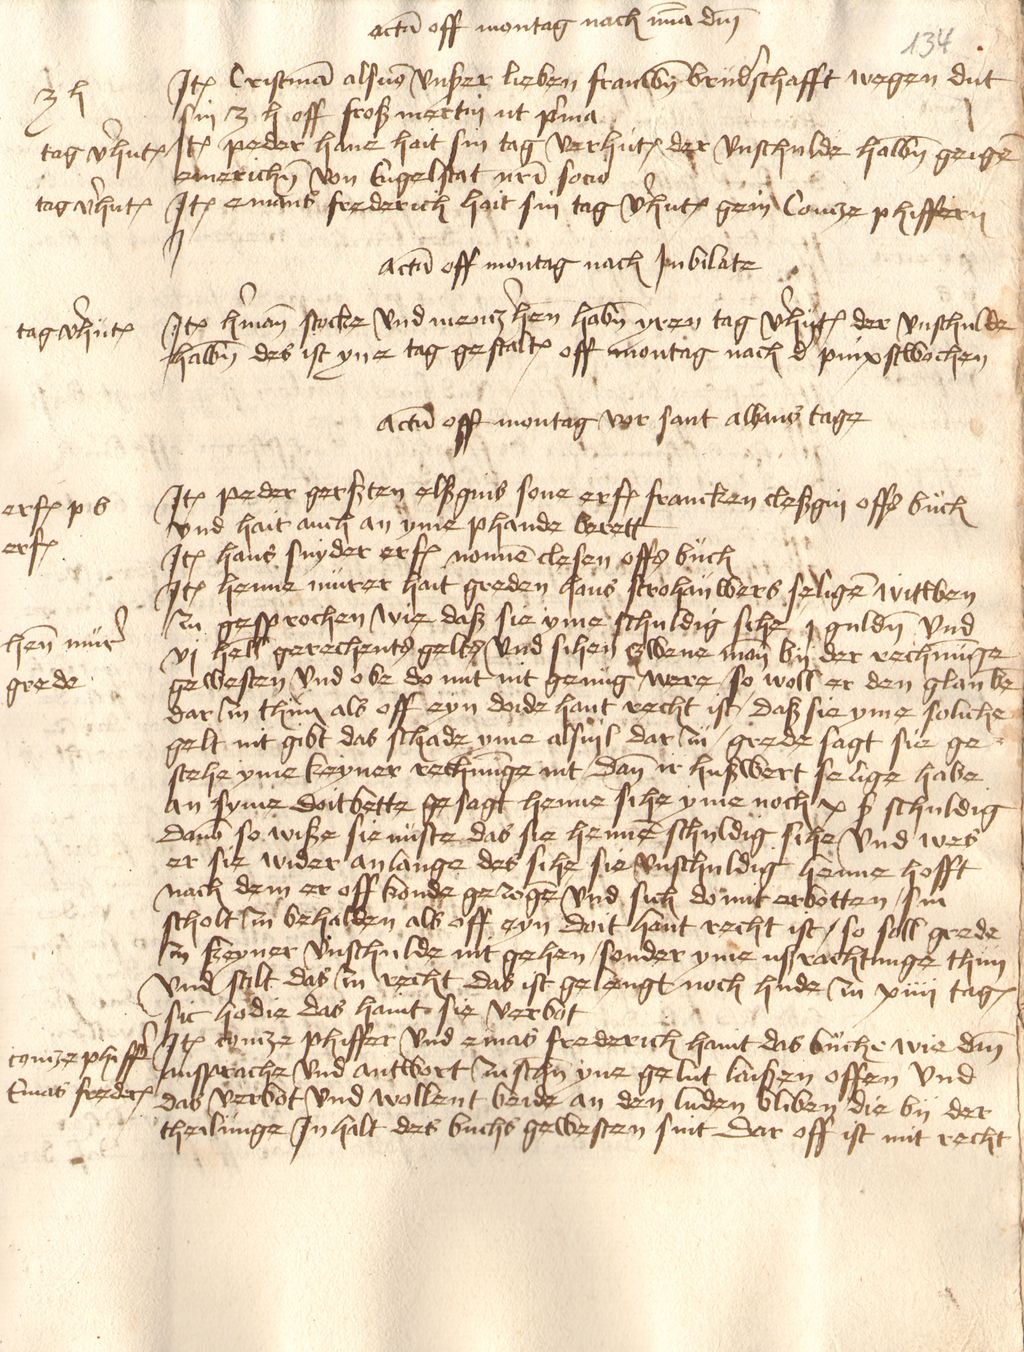 actu off montag nach mia dni
134
3 h
Ite Cristman als vo unßer lieben frauwen bruderschafft wegen dut
sin 3 h off Froß mertin ut prima
tag verhute
Ite peder hane hait sin tag verhute der unschulde halben geigen
emerichen von Engelstat nri socio
tag verhute
Ite emans frederich hait sin tag verhute gein Contze phiffern
Actu off montag nach Jubilate
tag verhute
Ite herman stocke und menczhen haben yren tag verhute der unschulde
halben des ist yne tag gestalt off montag nach der pinxstwochen
Actu off montag vor sant albans tage
erf p b
Ite peder gerhzten elßgins sone erf francken cleßgin offs buch
und hait auch an yme phande berett
erf
Ite hans snyder erf nonne clesen offs buch
Ite henne murer hait greden hans strohauwers seligen witwen
hen murer
zu gesprochen wie daß sie yme schuldig sihe 1 gulden und
grede
vj hell gerechents gelts und sihen zwene man by der rechnunge
gewesten und obe do mit nit genug were so woll er den glauben
dar zu thun als off eyn doide hant recht ist daß sie yme soliche
gelt nit gibt das schade yme alsuil dar zu grede sagt sie ge
stehe yme keyner rechnunge nit dan ir hußwert selige habe
an syme doitbette gesagt henne sihe yme noch x ß schuldig
dans so wiße sie niiste das sie henne schuldig sihe und wes
er sie wider anlange des sihe sie unschuldig henne hofft
nach dem er off konde gezogen und sich do mit erbotten sin
scholt zu behalden als off eyn doit hant recht ist so soll grede
zu keyner unschulde nit gehen sonder yme ußrachtunge thun
und stilt das zu recht das ist gelengt noch hude zu xiiii tage
sic hodie das haint sie verbot
contze phiffer
Ite contze phiffer und emas frederich haint das buche wie dan
Emas frederich
ansprache und antwort zuschen yne gelut laißen offen und
das verbot und wollent beide an den luden bliben die by der
theilunge Inhalt des buchs gewesten sint dar off ist mit recht